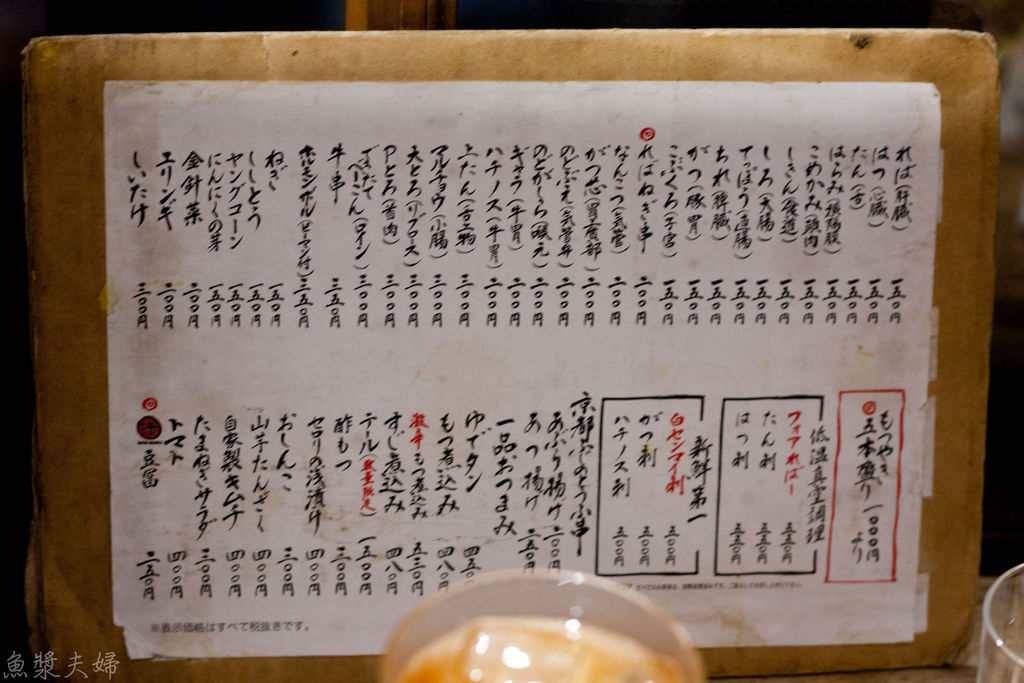 ればー(肝臓) 一五〇円
はつ(心臓) 一五〇円
たん(舌) 一五〇円
はらみ(横隔膜) 一五〇円
こめかみ(頭肉) 一五〇円
しきん(食道) 一五〇円
しろ(大腸) 一五〇円
てっぽう(直腸) 一五〇円
ちれ(脾臓) 一五〇円
がつ(豚胃) 一五〇円
こぶくろ(子宮) 一五〇円
ればねぎ串 二〇〇円
なんこつ(気管) 二〇〇円
がつ芯(胃賁部) 二〇〇円
のどぶえ(気管弁) 二〇〇円
のどがしら(喉元) 二〇〇円
ギャラ(牛胃) 二〇〇円
ハチノス(牛胃) 二〇〇円
上たん(舌上物) 三〇〇円
マルチョウ(小腸) 三〇〇円
大とろ(リブロース) 三〇〇円
Pとろ(首肉) 三〇〇円
できたてベーこん(ロイン) 三〇〇円
牛串 三五〇円
ホルモンザル(ピーマン付) 三五〇円
ねぎ 一五〇円
ししとう 一五〇円
ヤングコーン 一五〇円
にんにくの芽 一五〇円
金針菜 二〇〇円
エリンギ 二〇〇円
しいたけ 三〇〇円
もつやき
五本盛り 一〇〇〇円より
低温真空調理
フォアればー 五五〇円
たん刺 五五〇円
はつ刺 五五〇円
新鮮第一
白センマイ刺 五〇〇円
がつ刺 五〇〇円
ハチノス刺 五〇〇円
京都ふのとうふ串
あぶり揚げ 二〇〇円
あつ揚げ 二五〇円
一品おつまみ
ゆでタン 四五〇円
もつ煮込み 四八〇円
激辛もつ煮込み 五三〇円
すじ煮込み 四八〇円
テール(数量限定) 一五〇〇円
酢もつ 三〇〇円
セロリの浅漬け 四〇〇円
おしんこ 三〇〇円
山芋たんざく 四〇〇円
自家製キムチ 四〇〇円
たまねぎサラダ 三〇〇円
トマト 四〇〇円
豆富 二五〇円
※表示価格はすべて税抜きです。
魚漿夫婦